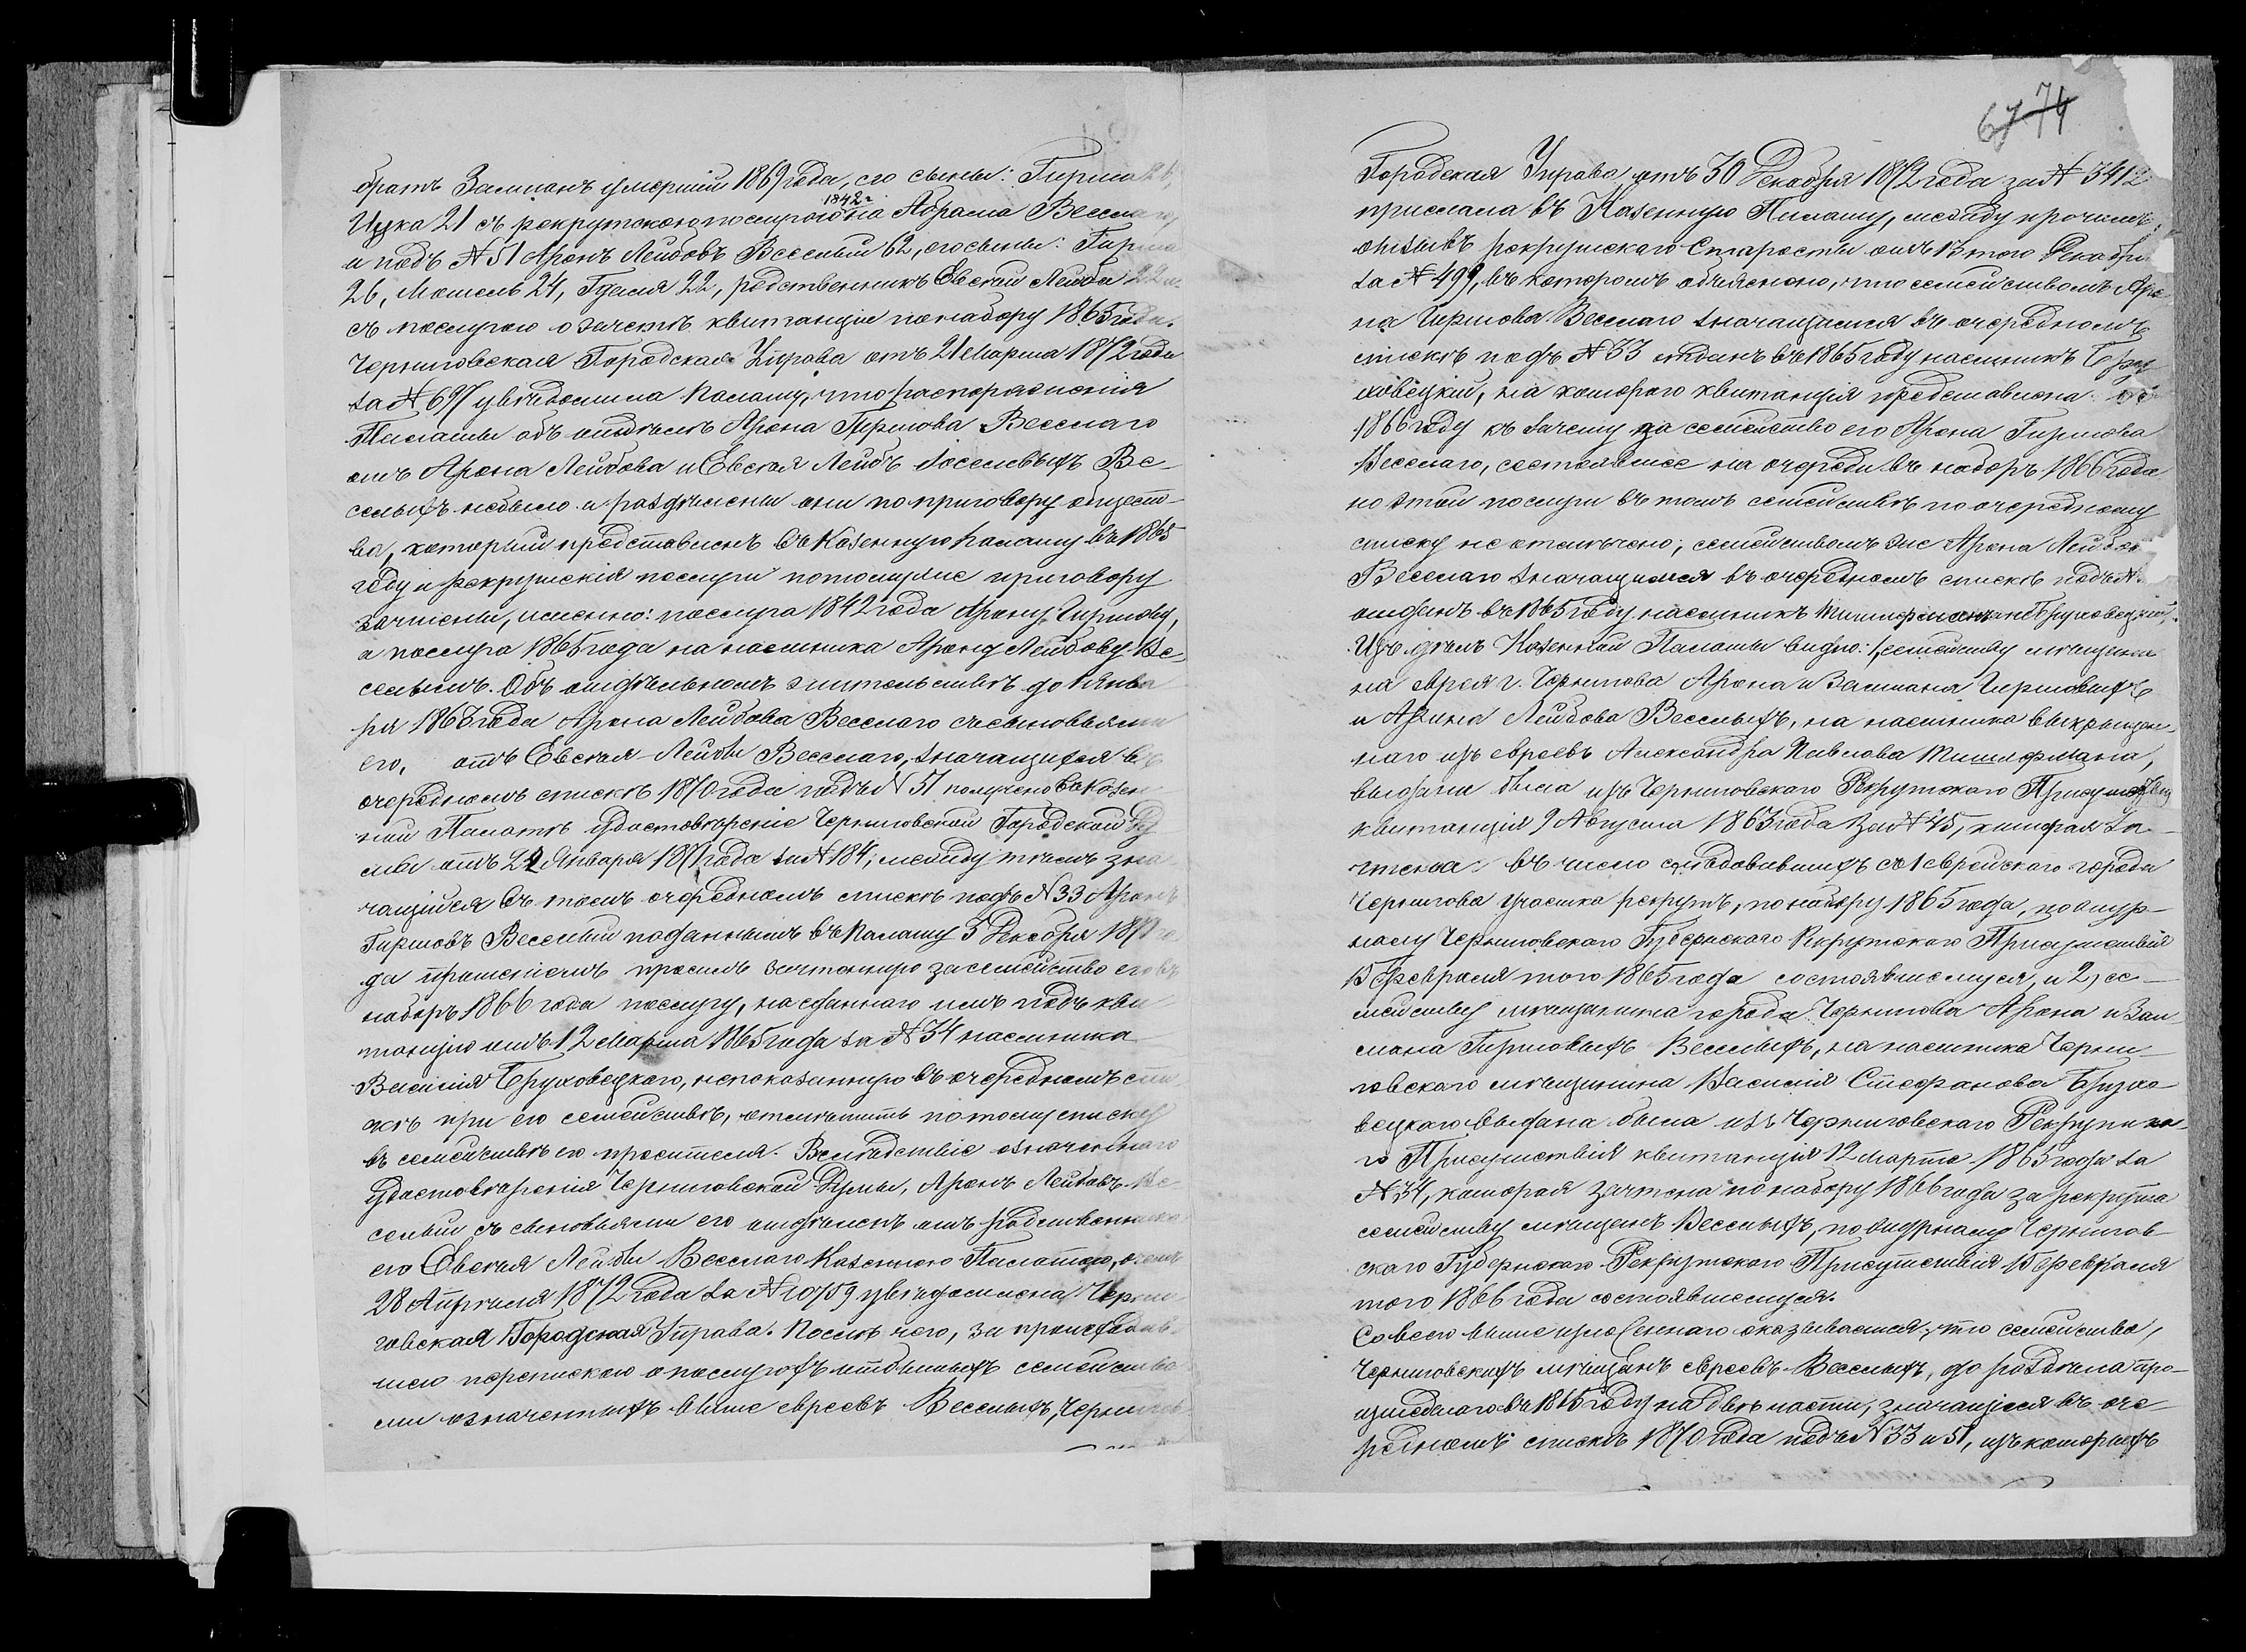 братъ Залманъ умершій 1869 года, его сыны: Гирша 26,
1842 г
Ицка 21 съ рекрутскою послугою на Абрама Веселаго,
и подъ № 51 Аронъ Лейбовъ Веселый 62, его сыны: Гирша
26, Мошель 24, Гдалія 22, родственникъ Евсей Лейба 22 и
съ послугою о зачетѣ квитанціи по набору 1865 года.
Черниговская Городская Управа отъ 21 Марта 1872 года
за № 697 увѣдомила Палату, что распоряженія
Палаты объ отдѣлѣ Арона Гиршова Веселаго
отъ Арона Лейбова и Евсея Лейбы Іоселевыхъ Ве-
селыхъ небыло а раздѣлены они по приговору общест-
ва, который представленъ въ Казенную Палату въ 1865
году и рекрутскія послуги потомуже приговору
зачтены, именно: послуга 1842 года Арону Гиршову,
а послуга 1865 года на наемника Арону Лейбову Ве-
селымъ. Объ отдѣльномъ жительствѣ до Янва
ря 1863 года Арона Лейбова Веселаго съ сыновьями
его, отъ Евсея Лейбы Веселаго, значащихся въ
очередномъ спискѣ 1870 года подъ № 51 получено въ Казен
ной Палатѣ удостовѣреніе Черниговской Городской Ду
мы отъ 22 Января 1871 года за № 184; между тѣмъ зна
чащійся въ томъ очередномъ спискѣ подъ № 33 Аронъ
Гиршовъ Веселый поданнымъ въ Палату 3 Декабря 1871 го
да прошеніемъ просилъ зачтенную за семейство его въ
наборъ 1866 года послугу, на сданнаго имъ подъ кви
танцію отъ 12 Марта 1865 года за № 34 наемника
Василія Бруховецкаго, непоказанную въ очередномъ спи
скѣ при его семействѣ, отмѣтить по тому списку
въ семействѣ его просителя. Вслѣдствіе означеннаго
удостовѣренія Черниговской Думы, Аронъ Лейбовъ Ве
селый съ сыновьями его отдѣленъ отъ родственника
его Евсея Лейбы Веселаго Казенною Палатою, о чемъ
28 Апрѣля 1872 года за № 10759 увѣдомлена Черни
говская Городская Управа. Послѣ чего, за происходив-
шею перепискою о послугахъ отбытыхъ семейства
ми означенныхъ выше евреевъ Веселыхъ, Чернигов
67 74
Городская Управа отъ 30 Декабря 1872 года за № 3412
прислала въ Казенную Палату, между прочимъ,
отзывъ рекрутскаго Старосты отъ 13 того Декабря
за № 499, въ которомъ объяснено, что семействомъ Аро
на Гиршова Веселаго значащимся въ очередномъ
спискѣ подъ № 33 отданъ въ 1865 году наемникъ Брух
ховецкій, на котораго квитанція представлена въ
1866 году къ зачету за семейство его Арона Гиршова
Веселаго, состоявшее на очереди въ наборъ 1866 года
но этой послуги въ томъ семействѣ по очередному
списку не отмѣчено; семействомъ же Арона Лейбов
Веселаго значащимся въ очередномъ спискѣ подъ №
отданъ въ 1865 году наемникъ Тишлерманъ а не Бруховецкій.
Изъ дѣлъ Казенной Палаты видно: 1, семейству мѣщани
на еврея г. Чернигова Арона и Залмана Гиршовыхъ
и Арона Лейбова Веселыхъ, на наемника выкрещен-
наго изъ евреевъ Александра Павлова Тишлермана,
выдана была изъ Черниговскаго Рекрутскаго Присутствія
квитанція 9 Августа 1863 года за № 45, которая за-
чтена въ число слѣдовавшихъ съ 1 еврейскаго города
Чернигова участка рекрутъ, по набору 1865 года, по жур-
налу Черниговскаго Губернскаго Рекрутскаго Присутствія
15 февраля того 1865 года состоявшемуся, и 2) се-
мейству мѣщанина города Чернигова Арона и Зал-
мана Гиршовыхъ Веселыхъ, на наемника Черни-
говскаго мѣщанина Василія Стефанова Брухо-
вецкаго выдана была изъ Черниговскаго Рекрутска-
го Присутствія квитанція 12 Марта 1865 года за
№ 34, которая зачтена по набору 1866 года за рекрута
семейству мѣщанъ Веселыхъ, по журналу Чернигов-
скаго Губернскаго Рекрутскаго Присутствія 15 февраля
того 1866 года состоявшемуся.
Со всего выше изложеннаго оказывается, что семейство,
Черниговскихъ мѣщанъ евреевъ Веселыхъ, до раздѣла про-
изшедшаго въ 1865 году на двѣ части, значащіяся въ оче-
редномъ спискѣ 1870 года подъ № 33 и 51, изъ которыхъ